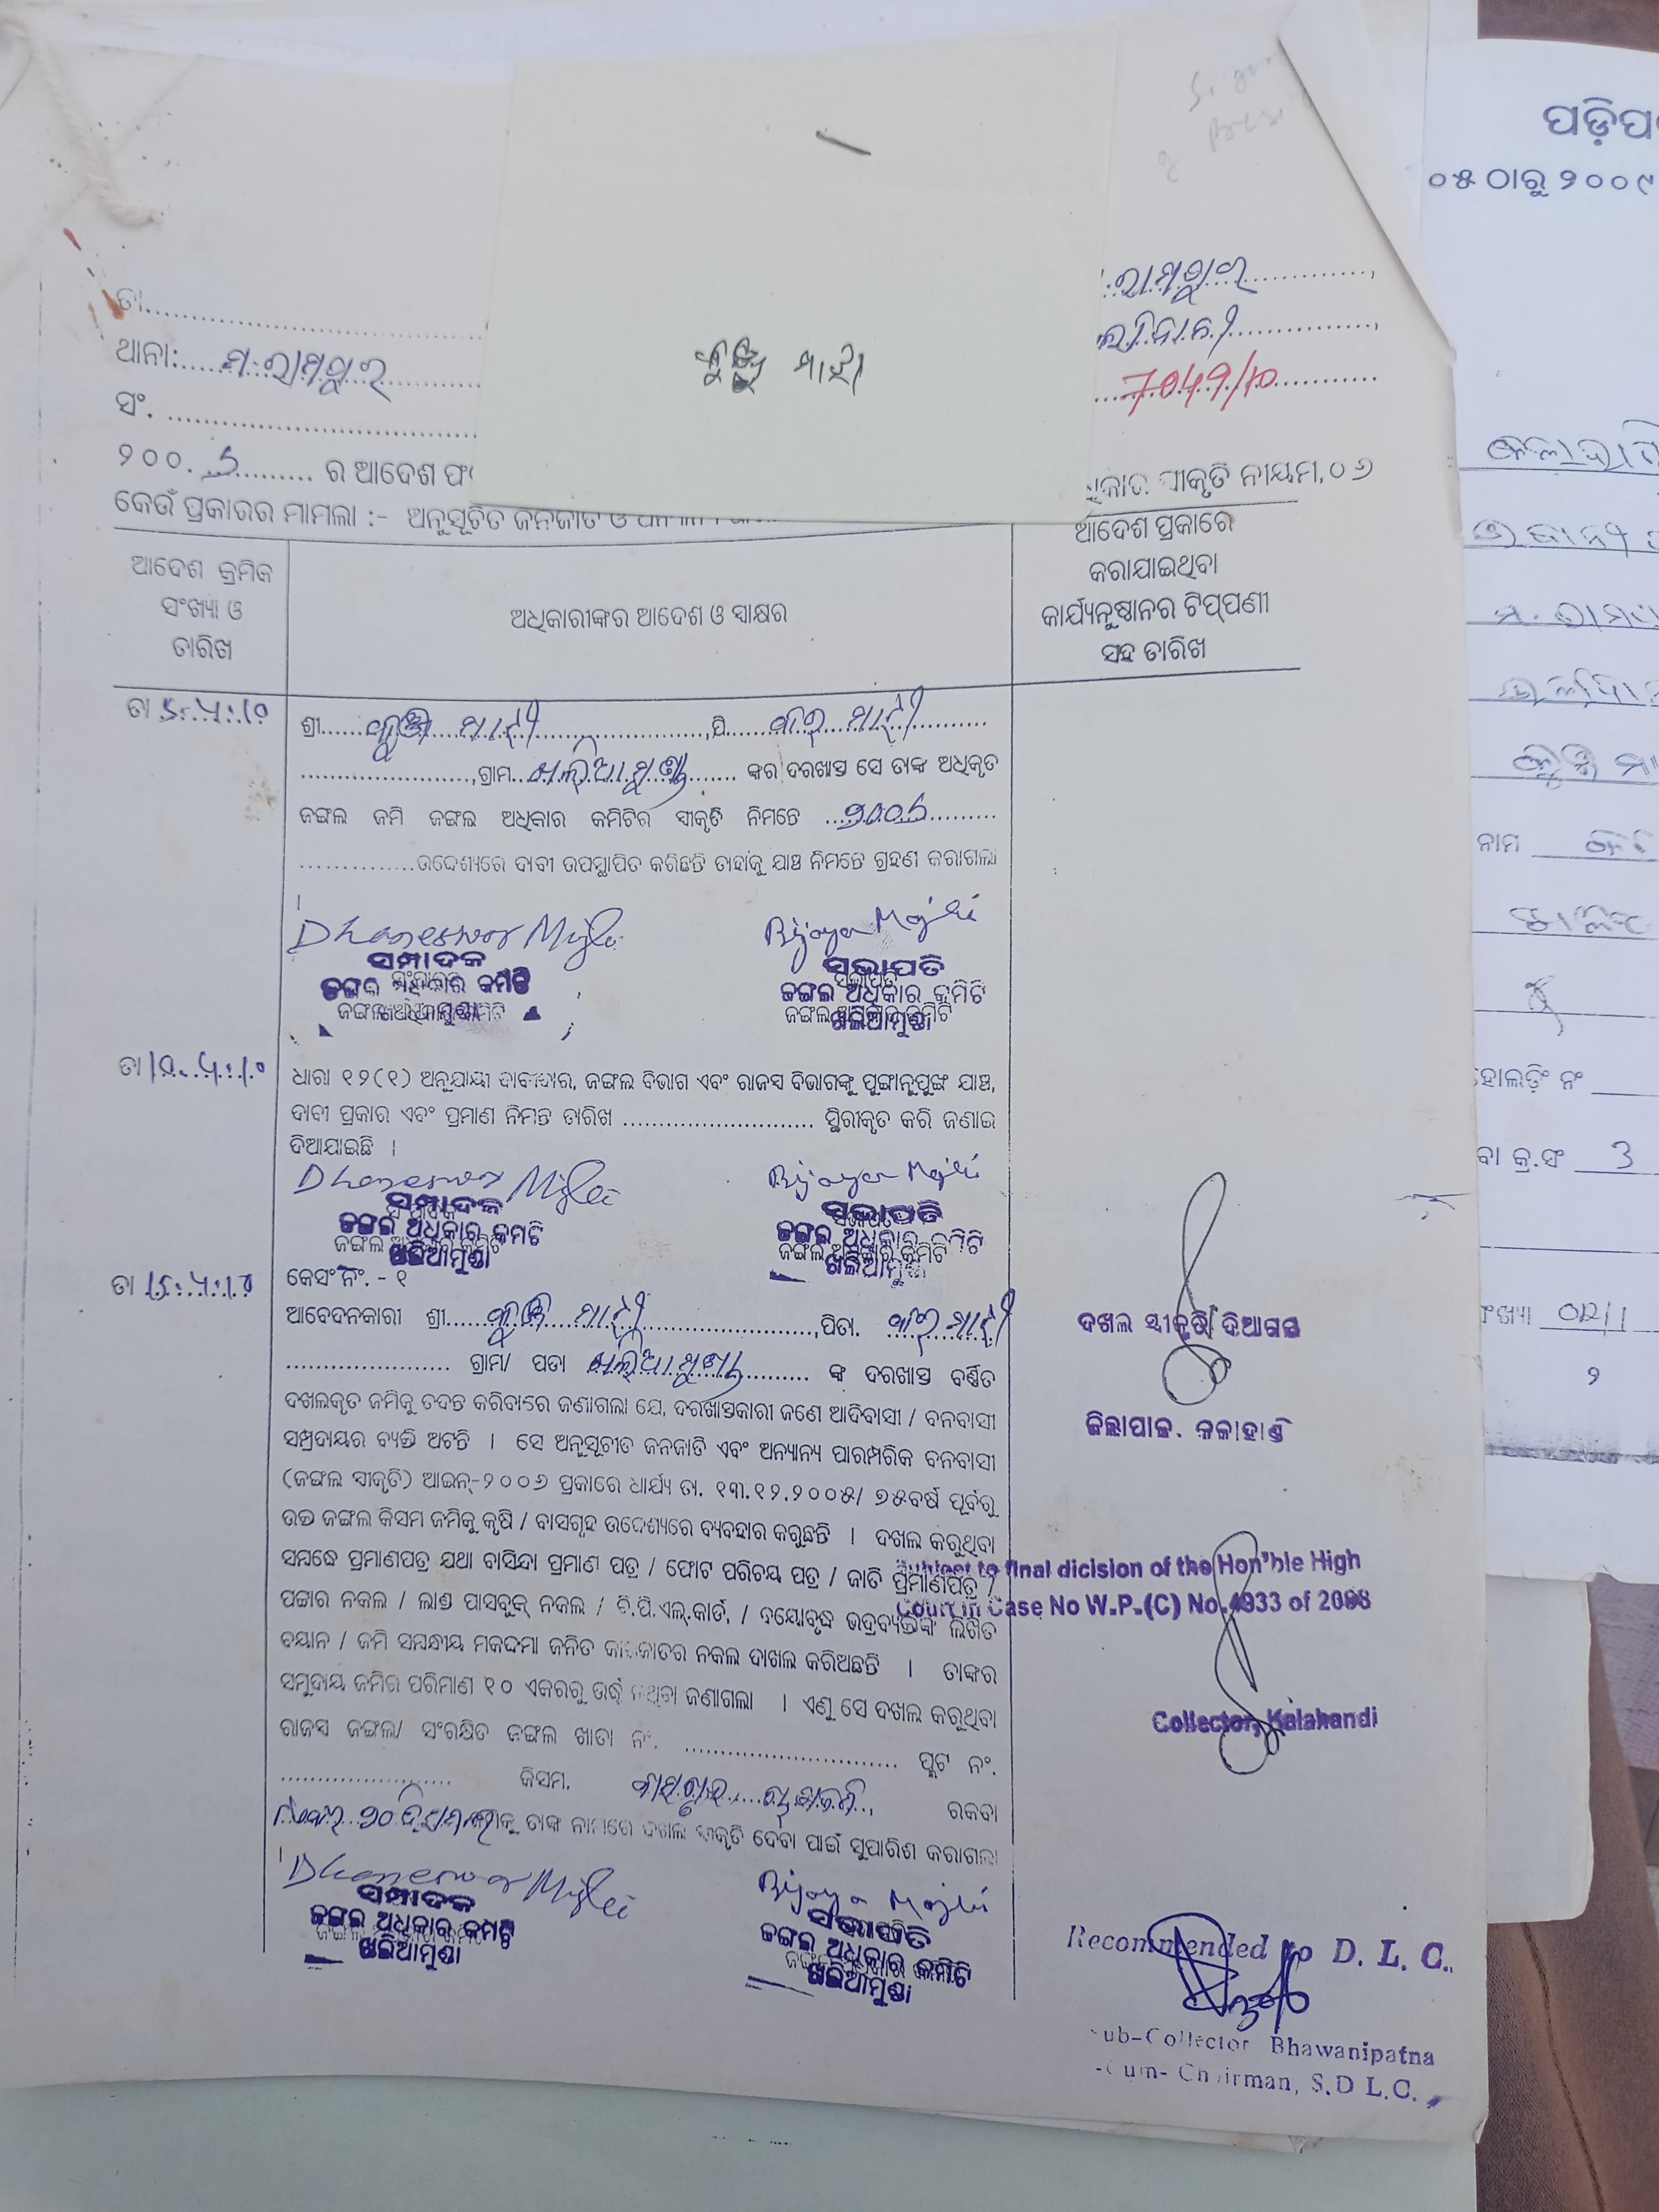 ପଡ଼ିପ
୦୫ ଠାରୁ ୨୦୦୯
ତା
ଥାନା: ମ.ରାମପୁର
ରାମପୁର
7049/10
ସଂ.
୨୦୦. ର ଆଦେଶ ଫ
ସ୍ୱୀକୃତି ନୀୟମ,୦୬
କେଉଁ ପ୍ରକାରର ମାମଲା :- ଅନୁସୂଚିତ ଜନଜାତି ଓ
କୁଞ୍ଜ ମାଝୀ
ଆଦେଶ କ୍ରମିକ
ସଂଖ୍ୟା ଓ
ତାରିଖ
ଅଧିକାରୀଙ୍କର ଆଦେଶ ଓ ସ୍ୱାକ୍ଷର
ଆଦେଶ ପ୍ରକାରେ
କରାଯାଇଥିବା
କାର୍ଯ୍ୟନୁଷ୍ଠାନର ଟିପ୍ପଣୀ
ସହ ତାରିଖ
ତା 5.4.10
ଶ୍ରୀ କୁଞ୍ଜ ମାଝୀ ,ପି ମାଝୀ
,ଗ୍ରାମ ଖଲିଆମୁଣ୍ଡା ଙ୍କର ଦରଖାସ୍ତ ସେ ତାଙ୍କ ଅଧିକୃତ
ଜଙ୍ଗଲ ଜମି ଜଙ୍ଗଲ ଅଧିକାର କମିଟିର ସ୍ୱୀକୃତି ନିମନ୍ତେ
ଉଦ୍ଦେଶ୍ୟରେ ଦାବୀ ଉପସ୍ଥାପିତ କରିଛନ୍ତି ତାହାକୁ ଯାଞ୍ଚ ନିମନ୍ତେ ଗ୍ରହଣ କରାଗଲା
।
Dhaneswor Majhi Bijaya Majhi
ସମ୍ପାଦକ ସଭାପତି
ଜଙ୍ଗଲ ଅଧିକାର କମିଟି ଜଙ୍ଗଲ ଅଧିକାର କମିଟି
ଖଲିଆମୁଣ୍ଡା
ତା 10.4.10
ଧାରା ୧୨(୧) ଅନୁଯାୟୀ ଦାବୀଦାର, ଜଙ୍ଗଲ ବିଭାଗ ଏବଂ ରାଜସ୍ୱ ବିଭାଗଙ୍କୁ ପୁଙ୍ଖାନୁପୁଙ୍ଖ ଯାଞ୍ଚ,
ଦାବୀ ପ୍ରକାର ଏବଂ ପ୍ରମାଣ ନିମନ୍ତ ତାରିଖ ସ୍ଥିରୀକୃତ କରି ଜଣାଇ
ଦିଆଯାଇଛି ।
Dhaneswor Majhi Bijaya Majhi
ସମ୍ପାଦକ ସଭାପତି
ଜଙ୍ଗଲ ଅଧିକାର କମିଟି ଜଙ୍ଗଲ ଅଧିକାର କମିଟି
ଖଲିଆମୁଣ୍ଡା ଖଲିଆମୁଣ୍ଡା
ତା 15.4.10
କେସଂ ନଂ. - ୧
ଆବେଦନକାରୀ ଶ୍ରୀ କୁଞ୍ଜ ମାଝୀ ,ପିତା. ମାଝୀ
ଗ୍ରାମ/ ପଡା ଖଲିଆମୁଣ୍ଡା ଙ୍କ ଦରଖାସ୍ତ ବର୍ଣ୍ଣିତ
ଦଖଲକୃତ ଜମିକୁ ତଦନ୍ତ କରିବାରେ ଜଣାଗଲା ଯେ, ଦରଖାସ୍ତକାରୀ ଜଣେ ଆଦିବାସୀ / ବନବାସୀ
ସମ୍ପ୍ରଦାୟର ବ୍ୟକ୍ତି ଅଟନ୍ତି । ସେ ଅନୁସୂଚୀତ ଜନଜାତି ଏବଂ ଅନ୍ୟାନ୍ୟ ପାରମ୍ପରିକ ବନବାସୀ
(ଜଙ୍ଗଲ ସ୍ୱୀକୃତି) ଆଇନ୍-୨୦୦୬ ପ୍ରକାରେ ଧାର୍ଯ୍ୟ ତା. ୧୩.୧୨.୨୦୦୫/ ୭୫ବର୍ଷ ପୂର୍ବରୁ
ଉକ୍ତ ଜଙ୍ଗଲ କିସମ ଜମିକୁ କୃଷି / ବାସଗୃହ ଉଦ୍ଦେଶ୍ୟରେ ବ୍ୟବହାର କରୁଛନ୍ତି । ଦଖଲ କରୁଥିବା
ସମ୍ବନ୍ଧେ ପ୍ରମାଣପତ୍ର ଯଥା ବାସିନ୍ଦା ପ୍ରମାଣ ପତ୍ର / ଫୋଟ ପରିଚୟ ପତ୍ର / ଜାତି ପ୍ରମାଣପତ୍ର /
ପଟ୍ଟାର ନକଲ / ଲାଣ୍ଡ ପାସବୁକ୍ ନକଲ / ବି.ପି.ଏଲ୍.କାର୍ଡ, / ବୟୋବୃଦ୍ଧ ଭଦ୍ରବ୍ୟକ୍ତିଙ୍କ ଲିଖିତ
ବୟାନ / ଜମି ସମ୍ବନ୍ଧୀୟ ମକଦ୍ଦମା ଜନିତ ନକଲ ଦାଖଲ କରିଅଛନ୍ତି । ତାଙ୍କର
ସମୁଦାୟ ଜମିର ପରିମାଣ ୧୦ ଏକରରୁ ଉର୍ଦ୍ଧ୍ୱ ଜଣାଗଲା । ଏଣୁ ସେ ଦଖଲ କରୁଥିବା
ରାଜସ୍ୱ ଜଙ୍ଗଲ/ ସଂରକ୍ଷିତ ଜଙ୍ଗଲ ଖାତା ନଂ. ପ୍ଲଟ ନଂ.
କିସମ. ରକବା
ତାଙ୍କ ନାମରେ ଦଖଲ ସ୍ୱୀକୃତି ଦେବା ପାଇଁ ସୁପାରିଶ କରାଗଲା
।
Dhaneswor Majhi Bijaya Majhi
ସମ୍ପାଦକ ସଭାପତି
ଜଙ୍ଗଲ ଅଧିକାର କମିଟି ଜଙ୍ଗଲ ଅଧିକାର କମିଟି
ଖଲିଆମୁଣ୍ଡା ଖଲିଆମୁଣ୍ଡା
ଦଖଲ ସ୍ୱୀକୃତି ଦିଆଗଲା
ଜିଲ୍ଲାପାଳ. କଳାହାଣ୍ଡି
Subject to final dicision of the Hon'ble High
Court in Case No W.P.(C) No.4933 of 2008
Collector, Kalahandi
Recommended to D. L. C.
Sub-Collector Bhawanipatna
-Cum- Chairman, S.D L.C.
ନାମ
ହୋଲଡ଼ିଂ ନଂ
ବା କ୍ର.ସଂ 3
ଂଖ୍ୟା
୨